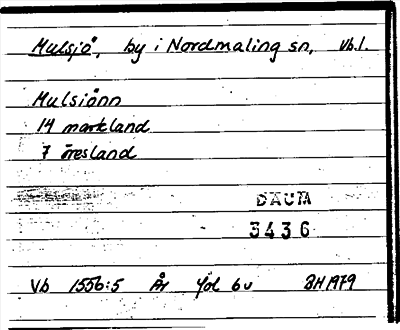 Mulsjö, by i Nordmaling sn, Vb.l.
Mulsiönn
14 markland
7 öresland
DAUM
3436
Vb 1556:5 År fol 6v BH 1979